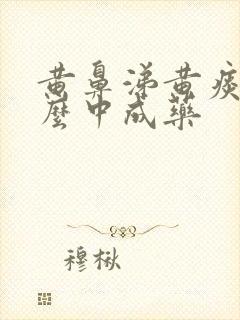 黄鼻涕黄痰
麼中成藥
穆楸